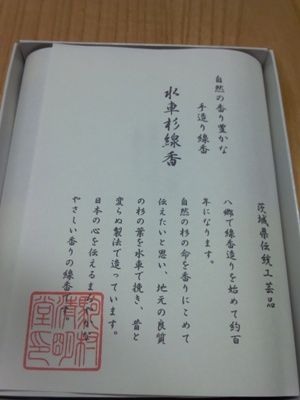 自然の香り豊かな
手造り線香
水車杉線香
茨城県伝統工芸品
八郷で線香造りを始めて約百
年になります。
自然の杉の命を香りにこめて
伝えたいと思い、地元の良質
の杉の葉を水車で挽き、昔と
変らぬ製法で造っています。
日本の心を伝えるま
やさしい香りの線香
駒村清明堂